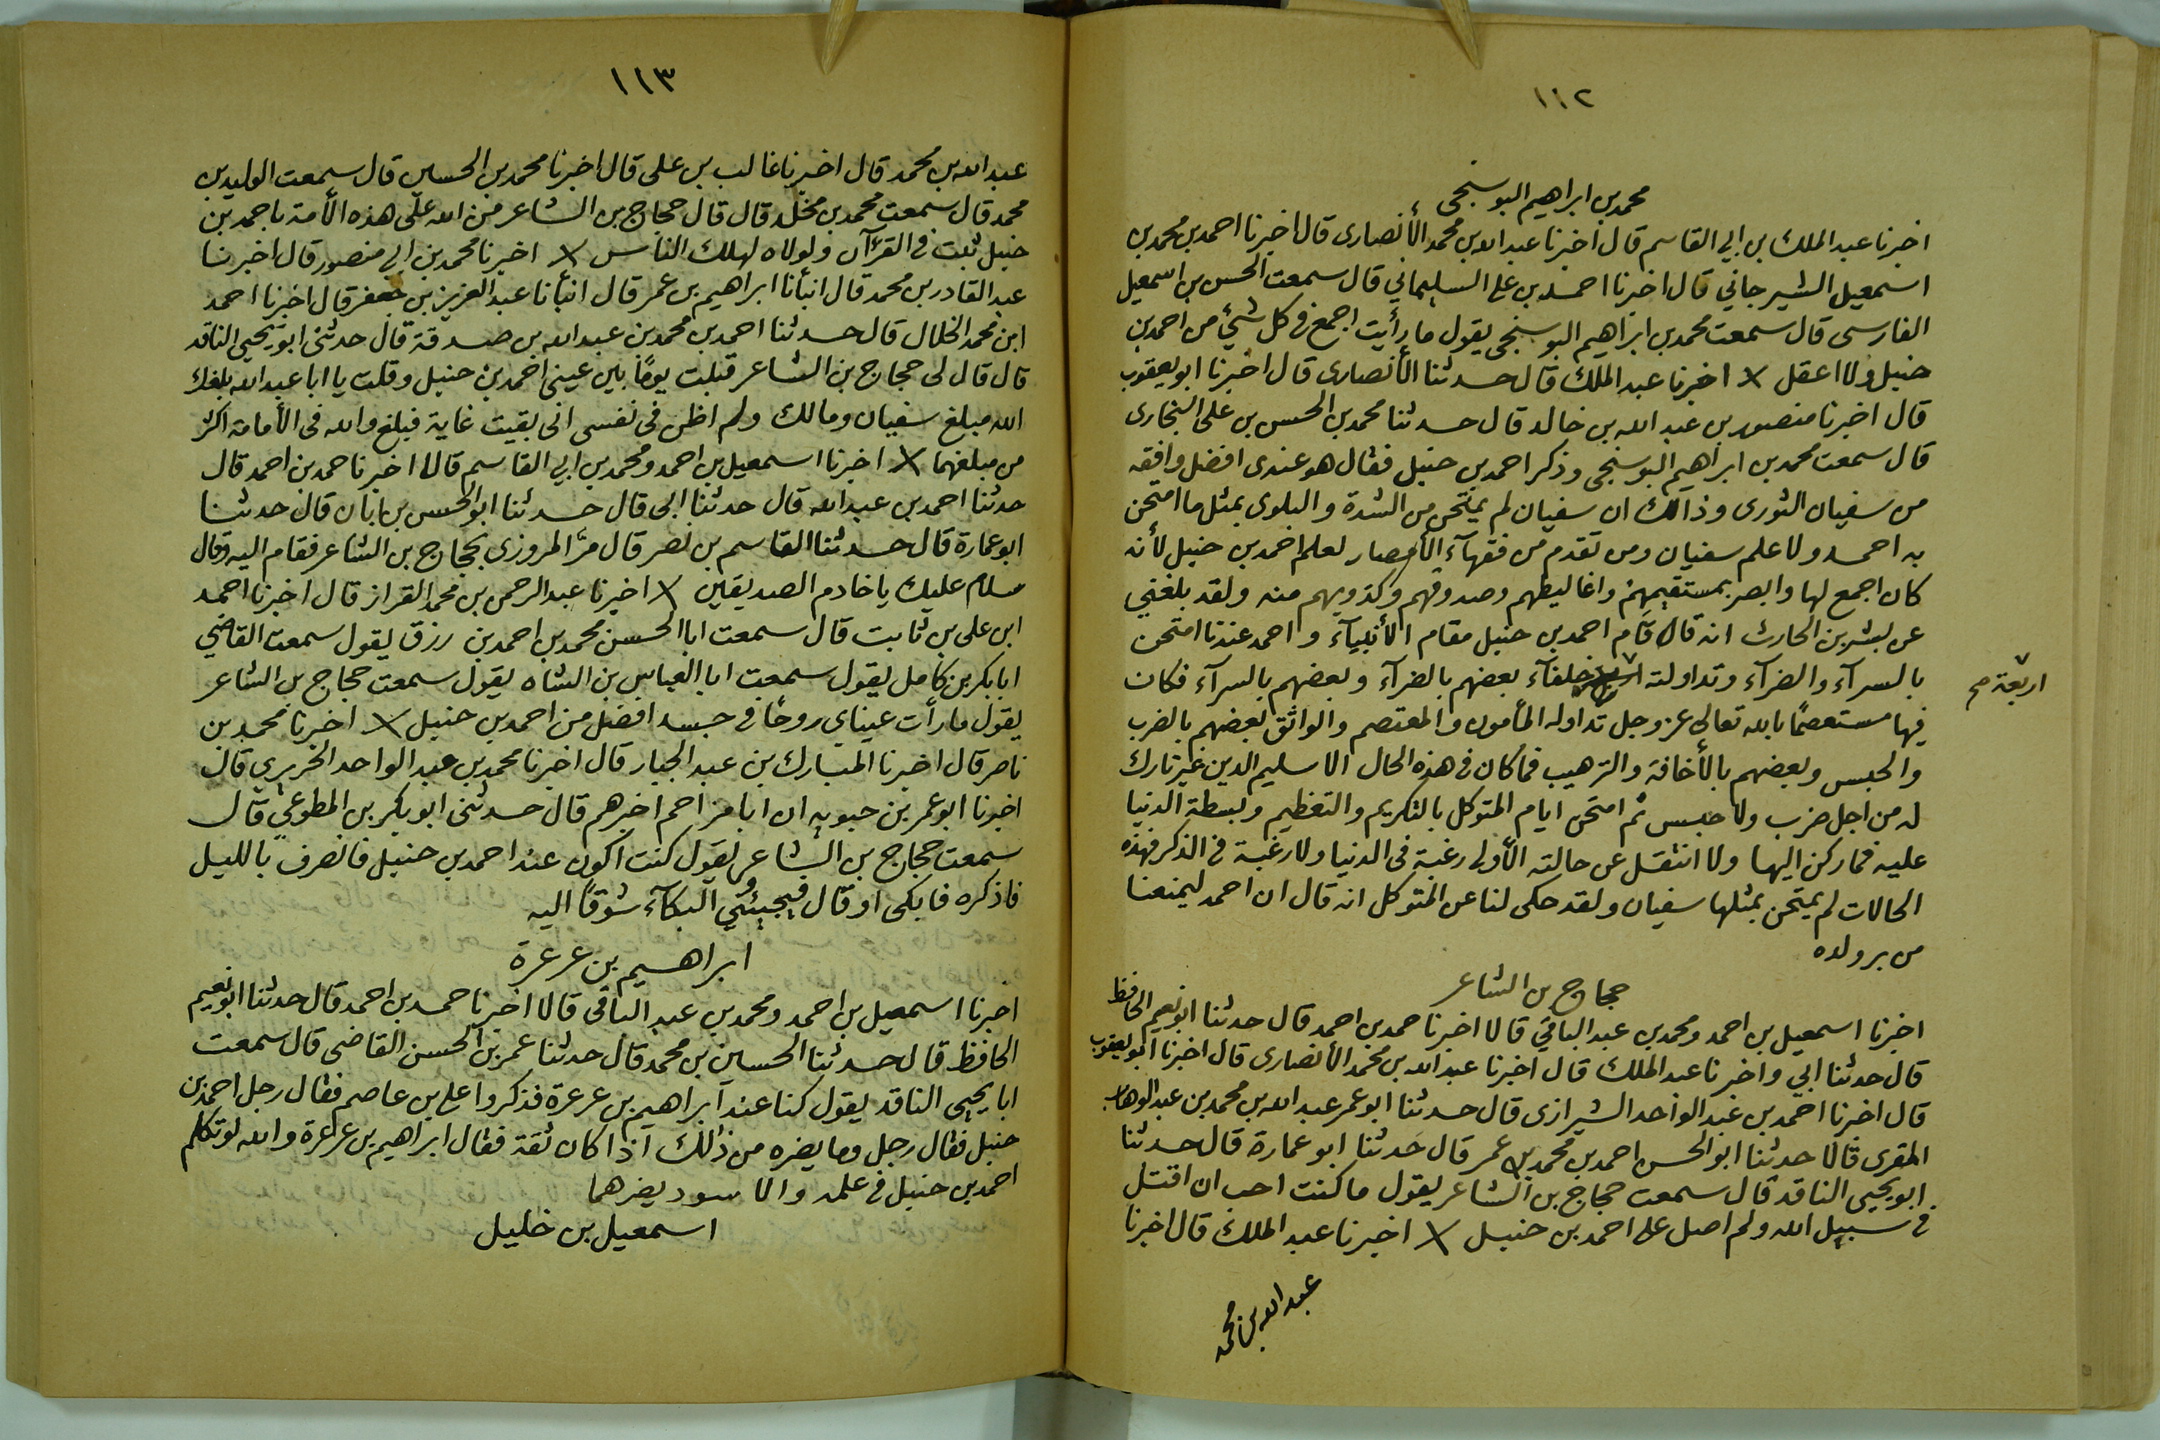 ١١٢
محمد بن ابراهيم البوسنجي
اخبرنا عبد الملك بن ابي القاسم قال اخبرنا عبد الله بن محمد الأنصارى قال اخبرنا احمد بن محمد بن
اسمعيل الشيرجاني قال اخبرنا احمد بن علي السليماني قال سمعت الحسن بن اسمعيل
الفارسى قال سمعت محمد بن ابراهيم البوسنجي يقول ما رأيت اجمع في كل شئ من احمد بن
حنبل ولا اعقل × اخبرنا عبد الملك قال حدثنا الأنصارى قال اخبرنا ابو يعقوب
قال اخبرنا منصور بن عبد الله بن خالد قال حدثنا محمد بن الحسن بن على البخارى
قال سمعت محمد بن ابراهيم البوسنجي وذكر احمد بن حنبل فقال هو عندى افضل وافقه
من سفيان الثورى وذالك ان سفيان لم يمتحن من الشدة والبلوى بمثل ما امتحن
به احمد ولا علم سفيان ومن تقدم من فقهآء الأمصار لعلم احمد بن حنبل لأنه
كان اجمع لها وابصر بمستقيمهم واغاليطهم وصدوقهم وكذوبهم منه ولقد بلغني
عن بشر بن الحارث انه قال قام احمد بن حنبل مقام الأنبيآء و احمد عندنا امتحن
بالسرآء والضرآء وتداولته خلفآء بعضهم بالضرآء وبعضهم بالسرآء فكان
اربعة صح
فيها مستعصمًا بالله تعالى عز وجل تداوله المأمون والمعتصم والواثق بعضهم بالضرب
والحبس وبعضهم بالأخافة والترهيب فما كان في هذه الحال الا سليم الدين غير تارك
له من اجل ضرب ولا حبس ثم امتحن ايام المتوكل بالتكريم والتعظيم وبسطة الدنيا
عليه فما ركن اليها ولا انتقل عن حالته الأولى رغبة في الدنيا ولا رغبة في الذكر فهذه
الحالات لم يمتحن بمثلها سفيان ولقد حكى لنا عن المتوكل انه قال ان احمد ليمنعنا
من بر ولده
حجاج بن الشاعر
اخبرنا اسمعيل بن احمد ومحمد بن عبد الباقي قالا اخبرنا حمد بن احمد قال حدثنا ابو نعيم الحافظ
قال حدثنا ابي واخبرنا عبد الملك قال اخبرنا عبد الله بن محمد الأنصارى قال اخبرنا ابو يعقوب
قال اخبرنا احمد بن عبد الواحد الشيرازى قال حدثنا ابو عمر عبد الله بن محمد بن عبد الوهاب
المقرى قالا حدثنا ابو الحسن احمد بن محمد بن عمر قال حدثنا ابو عمارة قال حدثنا
ابو يحيى الناقد قال سمعت حجاج بن الشاعر يقول ما كنت احب ان اقتل
في سبيل الله ولم اصل على احمد بن حنبل × اخبرنا عبد الملك قال اخبرنا
عبد الله بن محمد
١١٣
عبد الله بن محمد قال اخبرنا غالب بن على قال اخبرنا محمد بن الحسين قال سمعت الوليد بن
محمد قال سمعت محمد بن مخلد قال قال حجاج بن الشاعر من الله على هذه الأمة باحمد بن
حنبل ثبت في القرآن ولولاه لهلك الناس × اخبرنا محمد بن ابي منصور قال اخبرنا
عبد القادر بن محمد قال انبأنا ابراهيم بن عمر قال انبأنا عبد العزيز بن جعفر قال اخبرنا احمد
ابن محمد الخلال قال حدثنا احمد بن محمد بن عبد الله بن صدقة قال حدثنى ابو يحيى الناقد
قال قال لى حجاج بن الشاعر قبلت يومًا بين عينى احمد بن حنبل وقلت يا ابا عبد الله بلغك
الله مبلغ سفيان ومالك ولم اظن فى نفسى انى بقيت غاية فبلغ والله فى الأمامة اكثر
من مبلغهما × اخبرنا اسمعيل بن احمد ومحمد بن ابي القاسم قالا اخبرنا حمد بن احمد قال
حدثنا احمد بن عبد الله قال حدثنا ابى قال حدثنا ابو الحسن بن ابان قال حدثنا
ابو عمارة قال حدثنا القاسم بن نصر قال مرّ المروزى بحجاج بن الشاعر فقام اليه وقال
سلام عليك يا خادم الصديقين × اخبرنا عبد الرحمن بن محمد القزاز قال اخبرنا احمد
ابن على بن ثابت قال سمعت ابا الحسن محمد بن احمد بن رزق يقول سمعت القاضي
ابا بكر بن كامل يقول سمعت ابا العباس بن الشاه يقول سمعت حجاج بن الشاعر
يقول ما رأت عيناي روحًا في جسد افضل من احمد بن حنبل × اخبرنا محمد بن
ناصر قال اخبرنا المبارك بن عبد الجبار قال اخبرنا محمد بن عبد الواحد الحريرى قال
اخبرنا ابو عمر بن حيويه ان ابا مزاحم اخبرهم قال حدثنى ابو بكر بن المطوعي قال
سمعت حجاج بن الشاعر يقول كنت اكون عند احمد بن حنبل فانصرف بالليل
فاذكره فابكى او قال فيجيئني البكآء شوقًا اليه
ابراهيم بن عرعرة
اخبرنا اسمعيل بن احمد ومحمد بن عبد الباقى قالا اخبرنا حمد بن احمد قال حدثنا ابو نعيم
الحافظ قال حدثنا الحسين بن محمد قال حدثنا عمر بن الحسن القاضى قال سمعت
ابا يحيى الناقد يقول كنا عند ابراهيم بن عرعرة فذكروا على بن عاصم فقال رجل احمد بن
حنبل فقال رجل وما يضره من ذالك اذا كان ثقة فقال ابراهيم بن عرعرة والله لو تكلم
احمد بن حنبل في علمه والاسود يضرهما
اسمعيل بن خليل